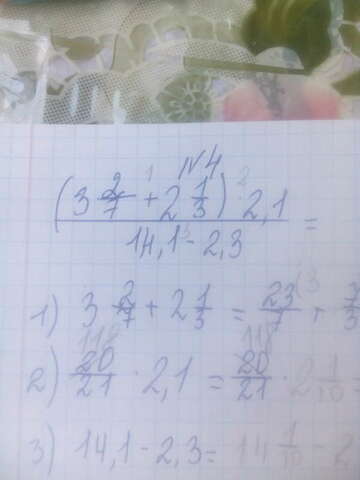 №4
(3 2/7 + 2 1/3) · 2,1
14,1 - 2,3 =
1) 3 2/7 + 2 1/3 = 23/7 +
2) 20/21 · 2,1 = 20/21 · 2 1/10 =
3) 14,1 - 2,3 = 14 1/10 - 2